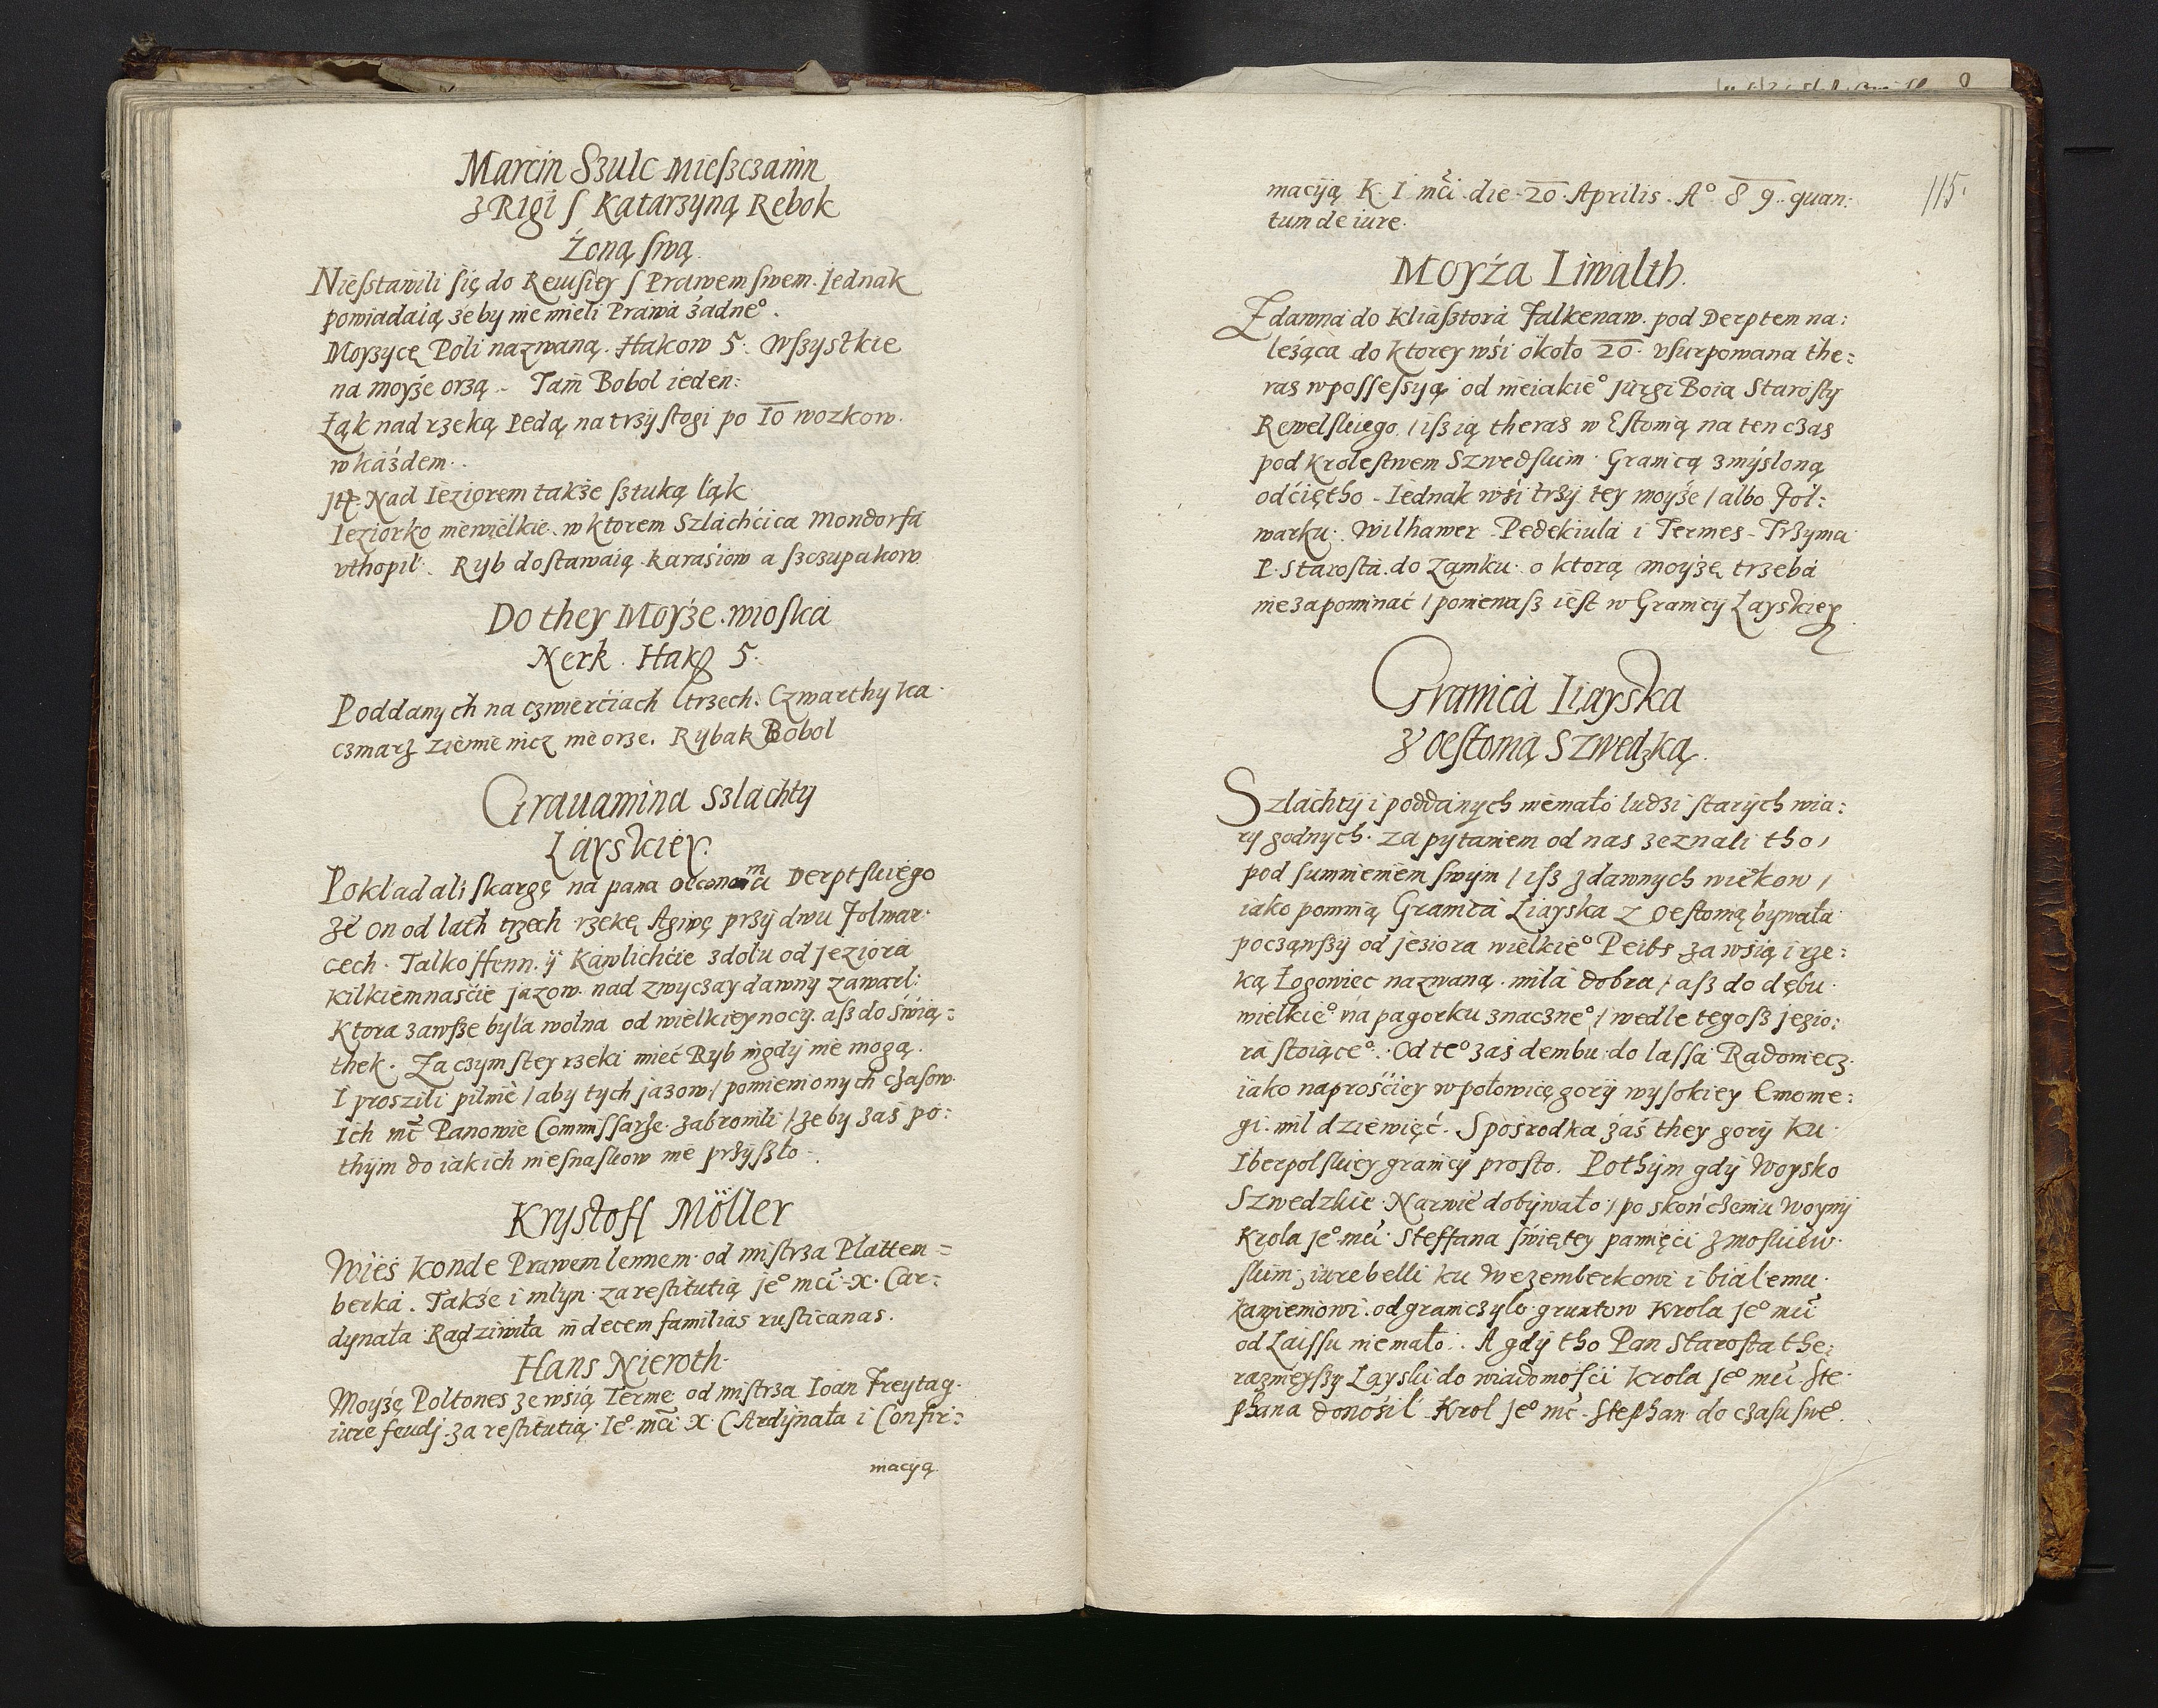 Marcin Szulc Mieszczanin
z Rigi s Katarzyną Rebok
Żoną swą.
Niesstawili się do Rewisiey s Prawem swem. Iednak
powiadaią, że by nie mieli Prawa żadneº.
Moyzycę Poli nazwaną. Hakow 5. Wszystkie
na moyże orzą. Tam Bobol ieden:
Łąk nad rzeką Pedą, na trzy stogi po 10 wozkow.
w każdem.
Nad Ieziorem także sztuką łąk
Ieziorko niewielkie. w ktorem Szlachćica Mondorfa
vthopił. Ryb dostawaią karasiow a szczupakow
Do they Moyże. wioska
Nerk. Hakg 5.
Poddanych na czwierćiach trzech. Czwarthy ka
czmarz ziemie nicz nie orze. Rybak Bobol
Grauamina szlachty
Layskiey.
Pokladali skargę na pana oeconoma Derptskiego
że on od lath trzech rzekę Agiwę przy dwu folwar:
cech. Talkoffenn. y Kawlichćie zdolu od jeziora
kilkiemnaśćie jazow. nad zwyczay dawny zawarl:
Ktora zawsze była wolna od wielkieynocy. asz do świą:
thek. Za czym stey rzeki mieć Ryb nigdy nie mogą.
I proszili pilnie / aby tych jazow / pomienionych czasow.
Ich mć Panowie Commissarze. zabronili / że by zaś po:
thym do iakich niesnaskow nie przyszło.
Krystoff Möller
Wieś konde Prawem lennem. od mistrza Platten=
berka. Także i mlyn. za restitutią jeº mći. X. Car:
dynała Radziwiła in decem familias rusticanas.
Hans Nieroth.
Moyżę Poltones ze wsią Terme od mistrza Ioan Freytag.
iure feudj. za restitutią. Ieº mći X. CArdynała i Confir:
macyą
115.
macyią K I mći. die 20 Aprilis. Aº 89. quan:
tum de iure.
Moyża Liwalth.
Zdawna do kliasztora Falkenaw. pod Derptem na:
leżąca do ktorey wśi około 20. vsurpowana the:
ras w possessyą od nieiakieº Jurgi Boia Starosty
Rewelskiego / isz ią theraz w Estonią na ten czas
pod Krolestwem Szwedskim. Granicą zmysloną
odćiętho. Iednak wśi trzy tey moyże / albo fol:
warku. Wilhawer Pedekiula i Termes. Trzyma
P. Starosta. do Zamku. o ktorą moyżę trzeba
nie zapominać / poniewasz iest w Granicy Layskiey.
Granica Liayska
z oestonią Szwedzką.
Szlachty i poddanych niemało ludzi starych wia:
ry godnych. za pytaniem od nas zeznali tho,
pod sumnieniem swym / isz z dawnych wiekow /
iako pomnią Granica Liayska z Oestonią bywała
począwszy od jeziora wielkieº Peibs za wsią i rze:
ką Łogowiec nazwaną. mila dobra / asz do dębu
wielkieº na pagorku znaczneº / wedle tegosz jezio:
ra stoiąceº. Od teº zaś dembu. do lassa Radowiecz.
iako naprośćiey w połowicę gory wysokiey Emome:
gi. mil dziewięć. Spośrodka zaś they gory ku
Iberpolskiey granicy prosto. Pothym gdy Woysko
Szwedzkie. Narwie dobywało / po skończeniu woyny
Krola jeº mći. Steffana święthey pamięći z moskiew.
skim, iure belli ku Wezemberkowi i bialemu.
kamieniowi. odgraniczylo. gruntow Krola Jeº mći
od Laissu niemało. A gdy tho Pan Starosta the:
raznieyszy Layski do wiadomośći Krola jeº mći. Ste:
phana donośił. Krol jeº mć. Stephan do czasu sweº.